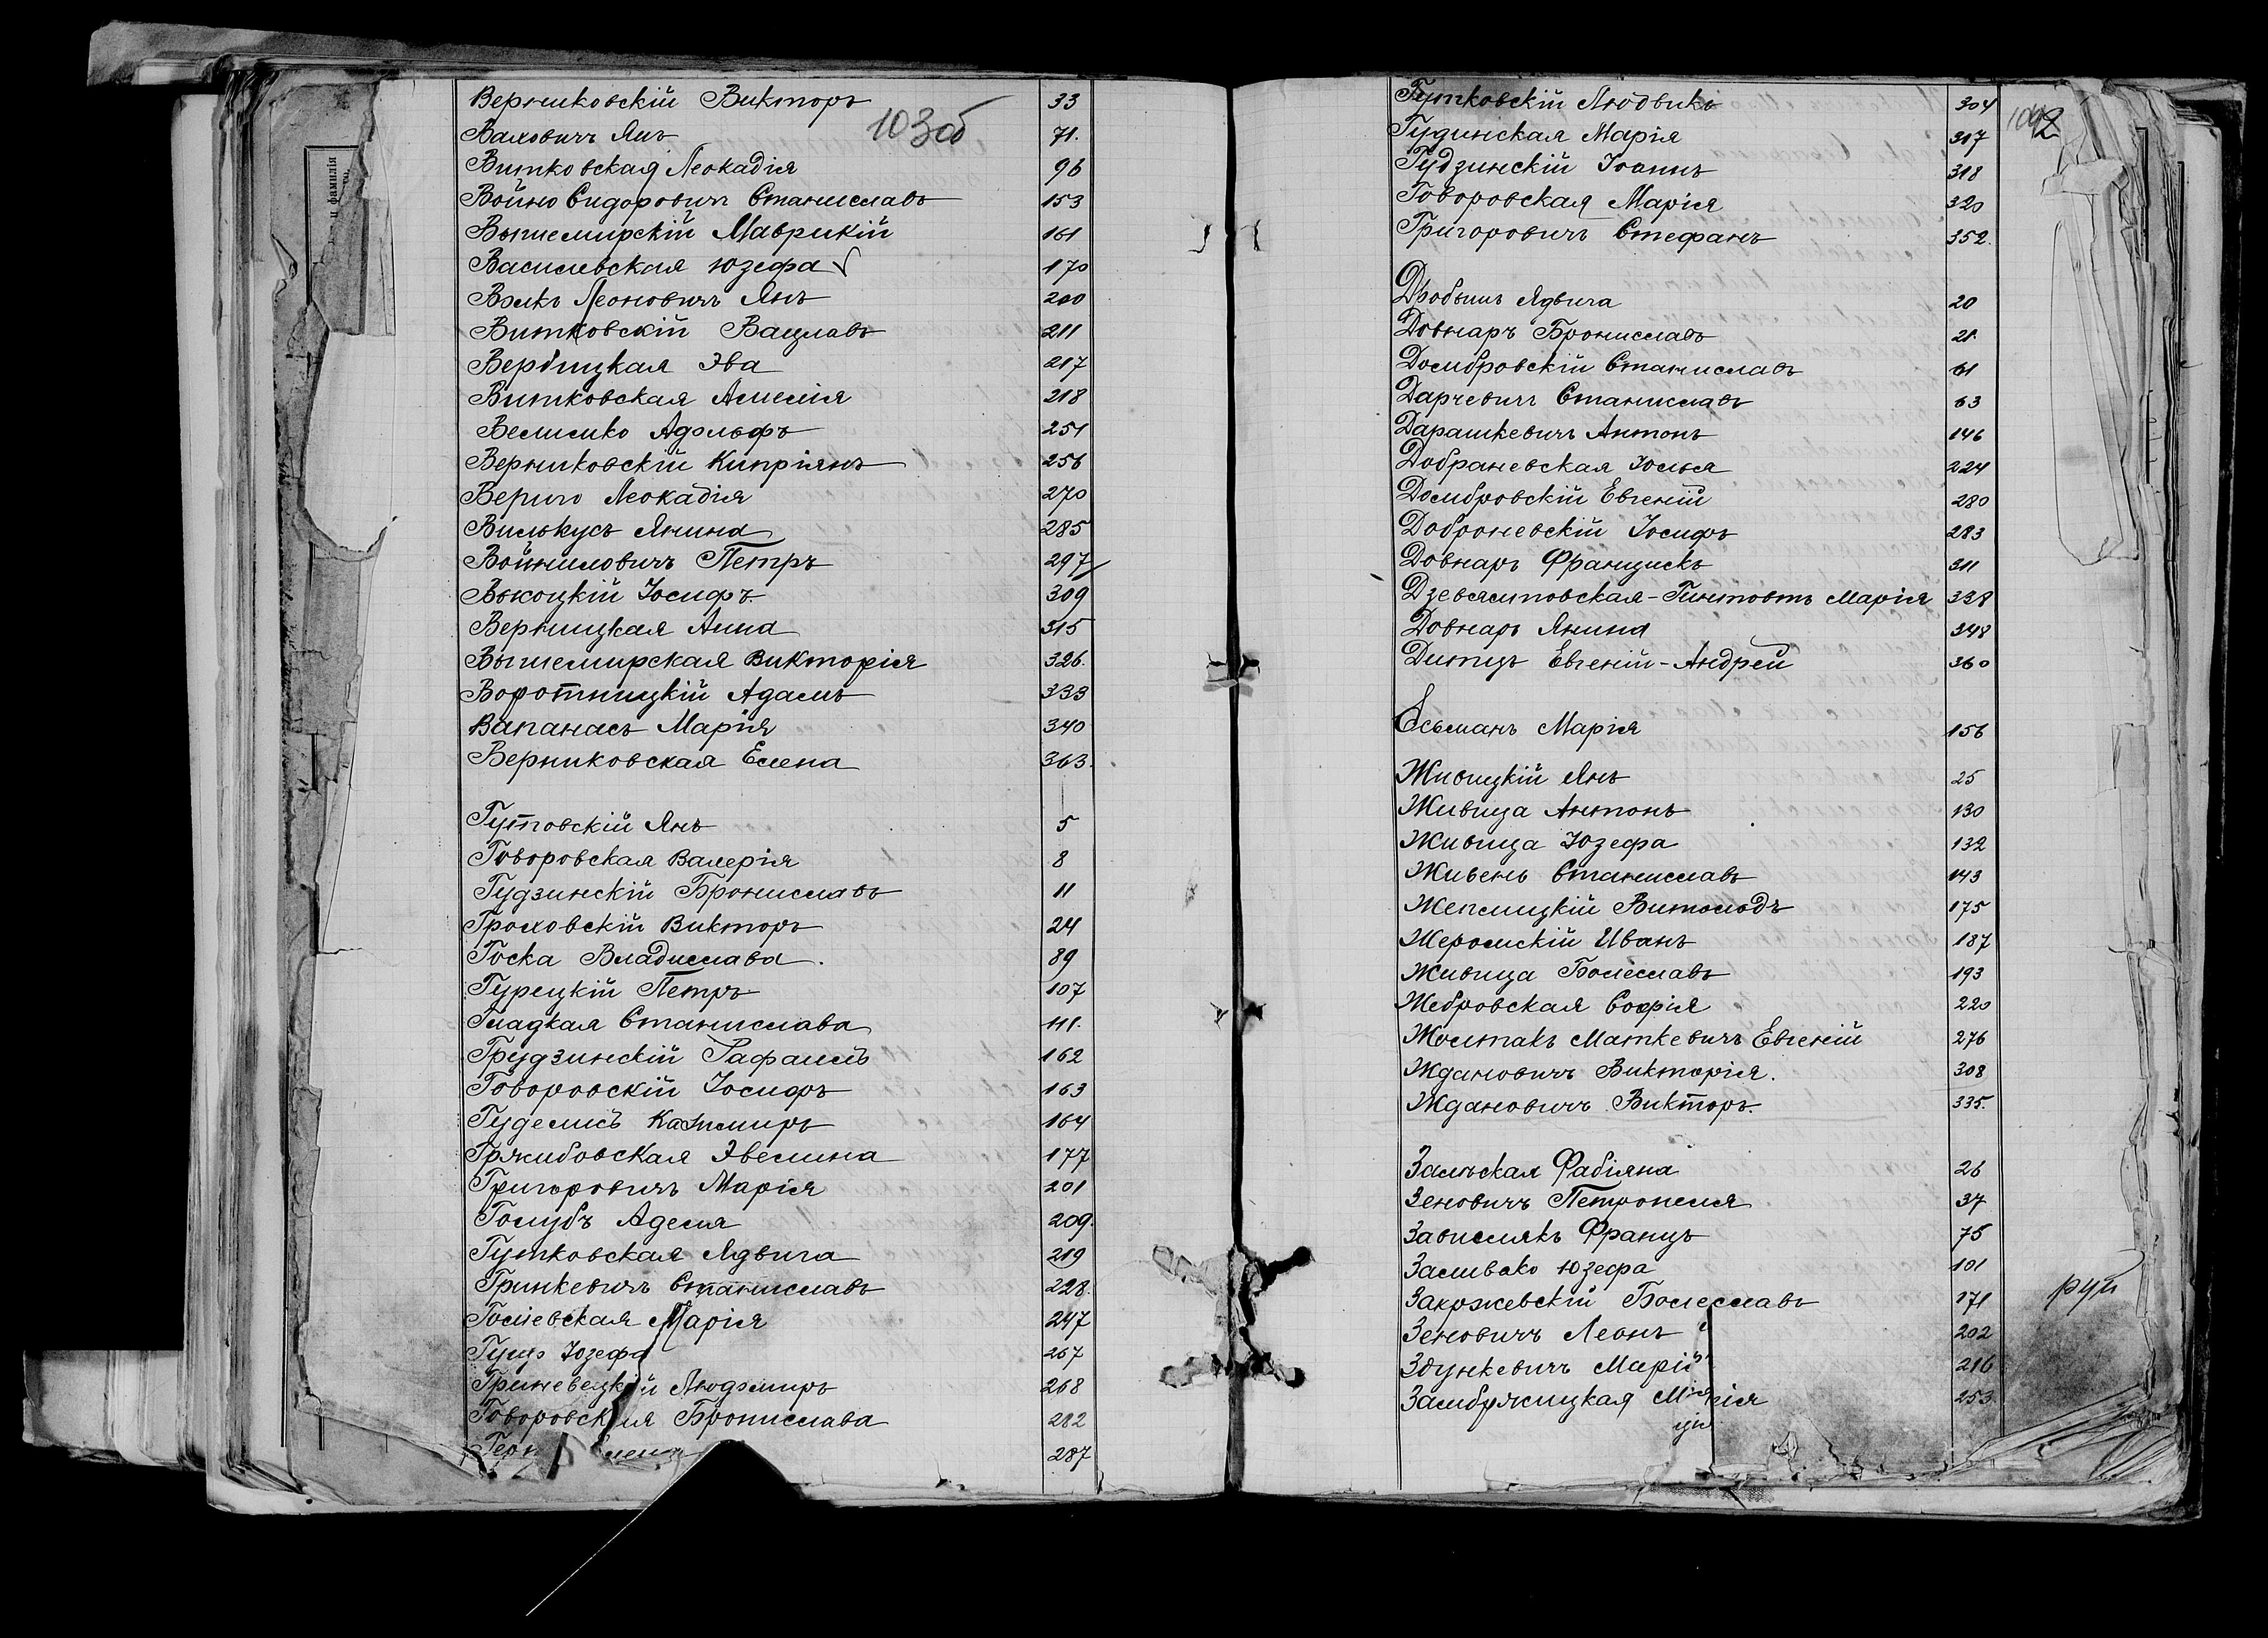 и фамилія
103об
Верниковскій Викторъ 33
Валовичъ Янъ 71.
Витковская Леокадія 96
Войно Сидоровичъ Станиславъ 153
Вышемирскій Маврикій 161
Василевская Юзефа 170
Волкъ Леоновичъ Янъ 200
Витковскій Вацлавъ 211
Вербицкая Эва 217
Витковская Амелія 218
Велишко Адольфъ 251
Верниковскій Кипріянъ 256
Вериго Леокадія 270
Вилькусъ Янина 285
Войниловичъ Петръ 297
Высоцкій Іосифъ 309
Верницкая Анна 315
Вышемирская Викторія 326.
Воротницкій Адамъ 333
Вапанасъ Марія 340
Верниковская Елена 363.
Гутовскій Янъ 5
Говоровская Валерія 8
Гудзинскій Брониславъ 11
Гроховскій Викторъ 24
Госка Владислава. 89
Гурецкій Петръ 107
Гладкая Станислава 111.
Грудзинскій Рафаилъ 162
Говоровскій Іосифъ 163
Гуделисъ Казимиръ 164
Гржибовская Эвелина 177
Григоровичъ Марія 201
Голубъ Аделя 209.
Гутковская Ядвига 219
Гринкевичъ Станиславъ 228.
Голіевская Марія 247
Гущо Юзефа 267
Гриневецкій Людомиръ 268
Говоровская Бронислава 282
287
Гутковскій Людвикъ 304
Гудинская Марія 317
Гудзинскій Іоаннъ 318
Говоровская Марія 320
Григоровичъ Стефанъ 352.
Дробышъ Ядвига 20
Довнаръ Брониславъ 21.
Домбровскій Станиславъ 61
Дарчевичъ Станиславъ 63
Дарашкевичъ Антонъ 146
Добраневская Юлья 224
Домбровскій Евгеній 280
Доброневскій Іосифъ 283
Довнаръ Францискъ 311
Дзевялтовская-Гинтовтъ Марія 338
Довнаръ Янина 348
Дитцъ Евгеній-Андрей 360
Есьманъ Марія 156
Живицкій Янъ 25
Живица Антонъ 130
Живица Юзефа 132
Живень Станиславъ 143
Жеплицкій Витольдъ 175
Жеромскій Иванъ 187
Живица Болеславъ 193
Жебровская Софія 220
Жолтакъ Маткевичъ Евгеній 276
Ждановичъ Викторія. 308
Ждановичъ Викторъ. 335.
Залѣская Фабіяна 26
Зеновичъ Петронеля 37
Зависляк Францъ 75
Заливако Юзефа 101
Закржевскій Болеславъ 171
Зеновичъ Леонъ 202
Здункевичъ 216
Замбржицкая 253